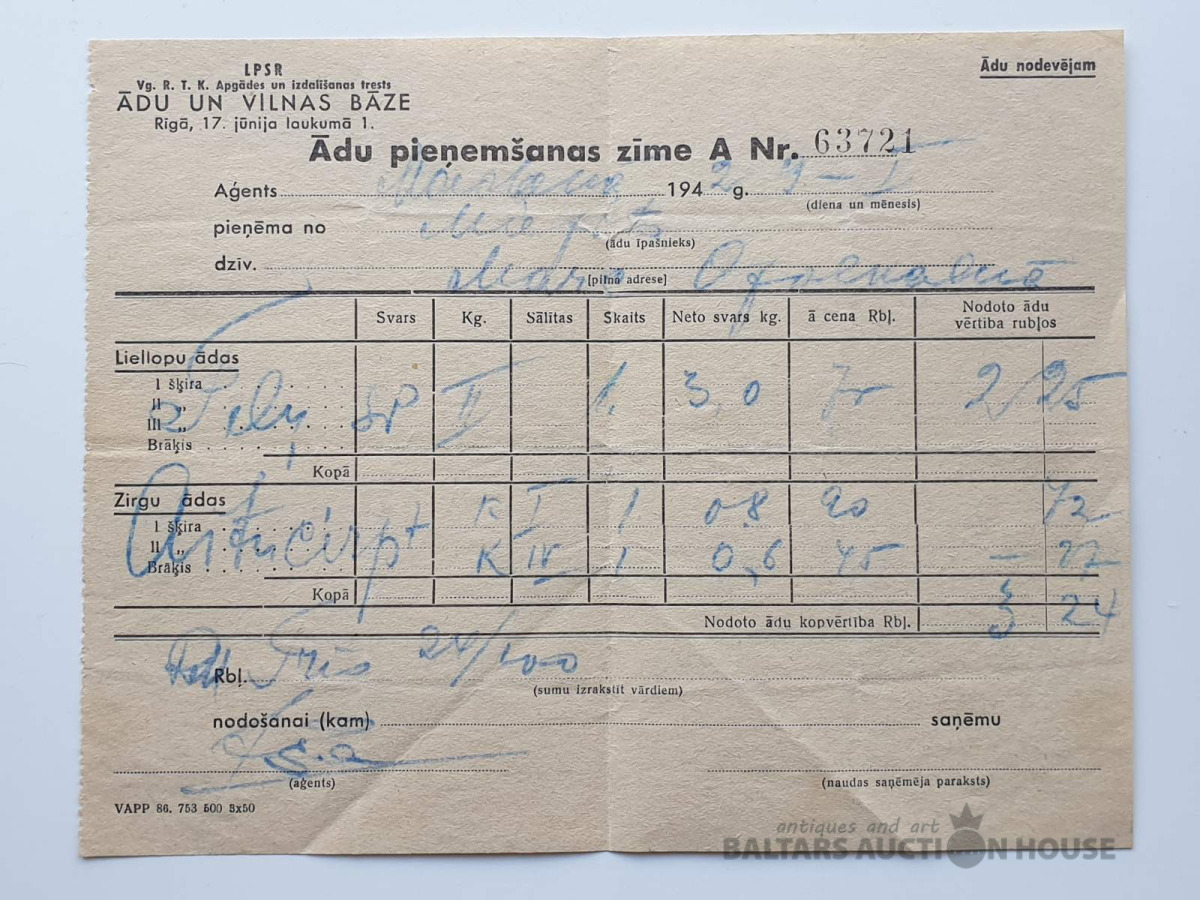 LPSR
Vg. R. T. K. Apgādes un izdalīšanas trests
ĀDU UN VILNAS BĀZE
Rīgā, 17. jūnija laukumā 1.
Ādu nodevējam
Ādu pieņemšanas zīme A Nr. 63721
Aģents 194 2 g. 9 – I
(diena un mēnesis)
pieņēma no
(ādu īpašnieks)
dzīv.
[pilna adrese]
Svars Kg. Sālītas Skaits Neto svars kg. ā cena Rbļ. Nodoto ādu vērtība rubļos
Liellopu ādas
I šķira
II „ Teļu sp II 1. 3,0 75 2 25
III „
Brāķis
Kopā
Zirgu ādas
I šķira K I 1 0,8 90 72
II „ K IV 1 0,6 45 – 27
Brāķis
Kopā
Nodoto ādu kopvērtība Rbļ. 3 24
Rbļ. Trīs 24/100
(sumu izrakstīt vārdiem)
nodošanai (kam) saņēmu
(aģents) (naudas saņēmēja paraksts)
VAPP 86. 753 500 3x50
antiques and art
BALTARS AUCTION HOUSE